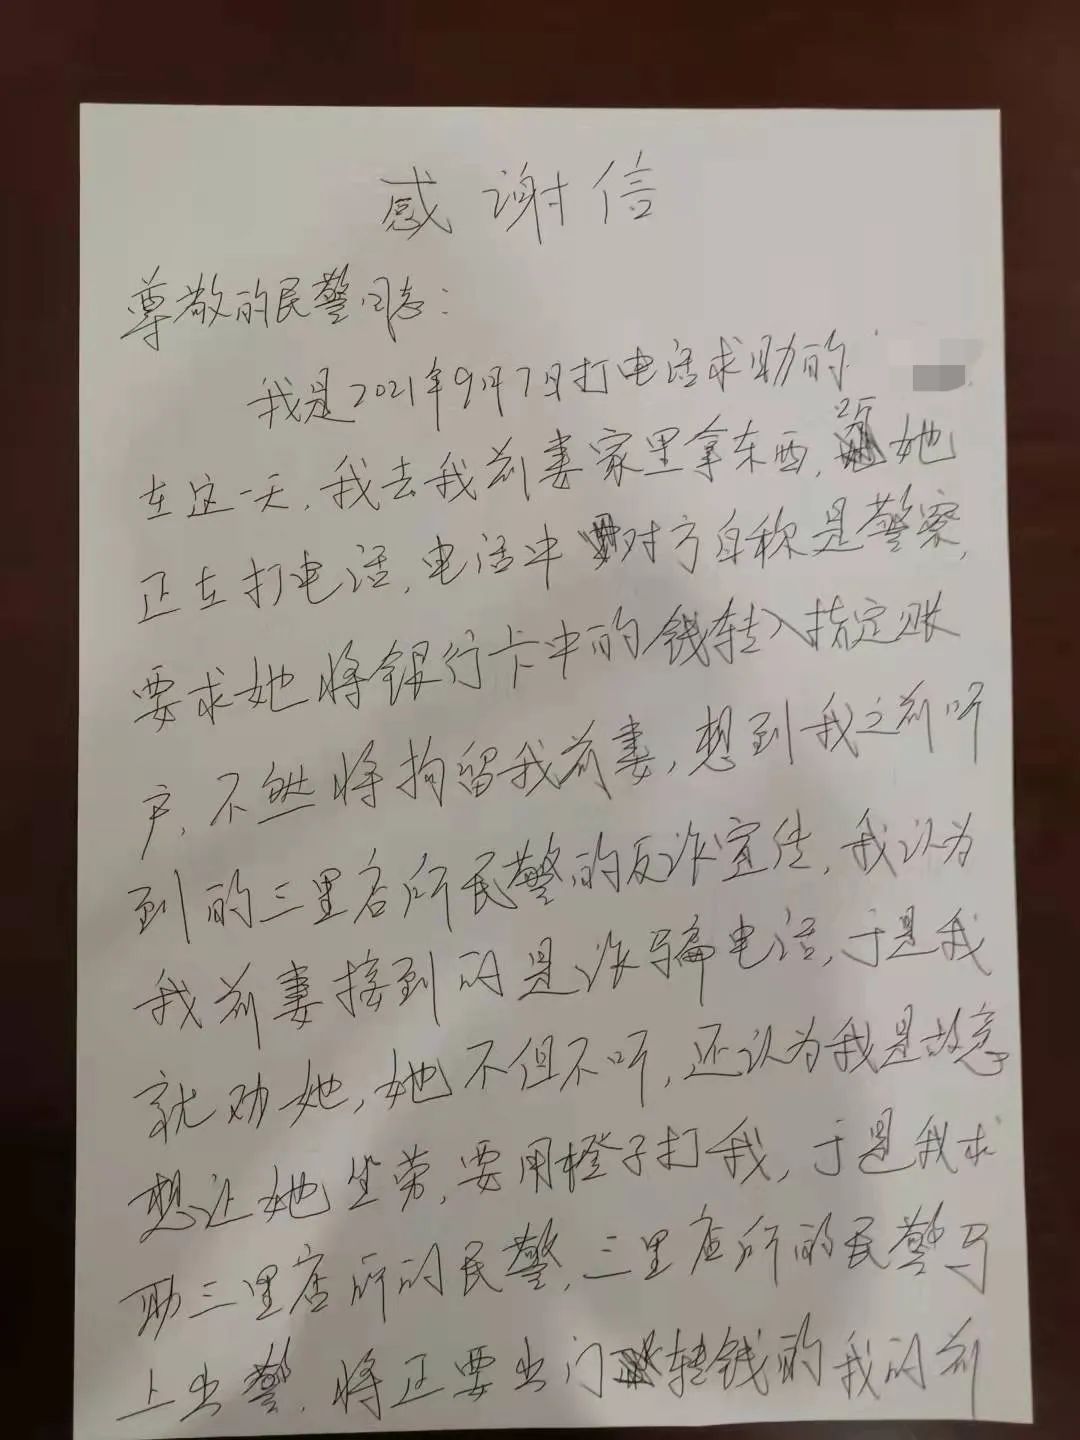 感谢信
尊敬的民警同志：
我是2021年9月7日打电话求助的
在这一天，我去我前妻家里拿东西，她
正在打电话，电话中对方自称是警察，
要求她将银行卡中的钱转入指定账
户，不然将拘留我前妻，想到我之前听
到的三里店所民警的反诈宣传，我认为
我前妻接到的是诈骗电话，于是我
就劝她，她不但不听，还认为我是故意
想让她坐劳，要用橙子打我，于是我求
助三里店所的民警，三里店所的民警马
上出警，将正要出门转钱的我的前